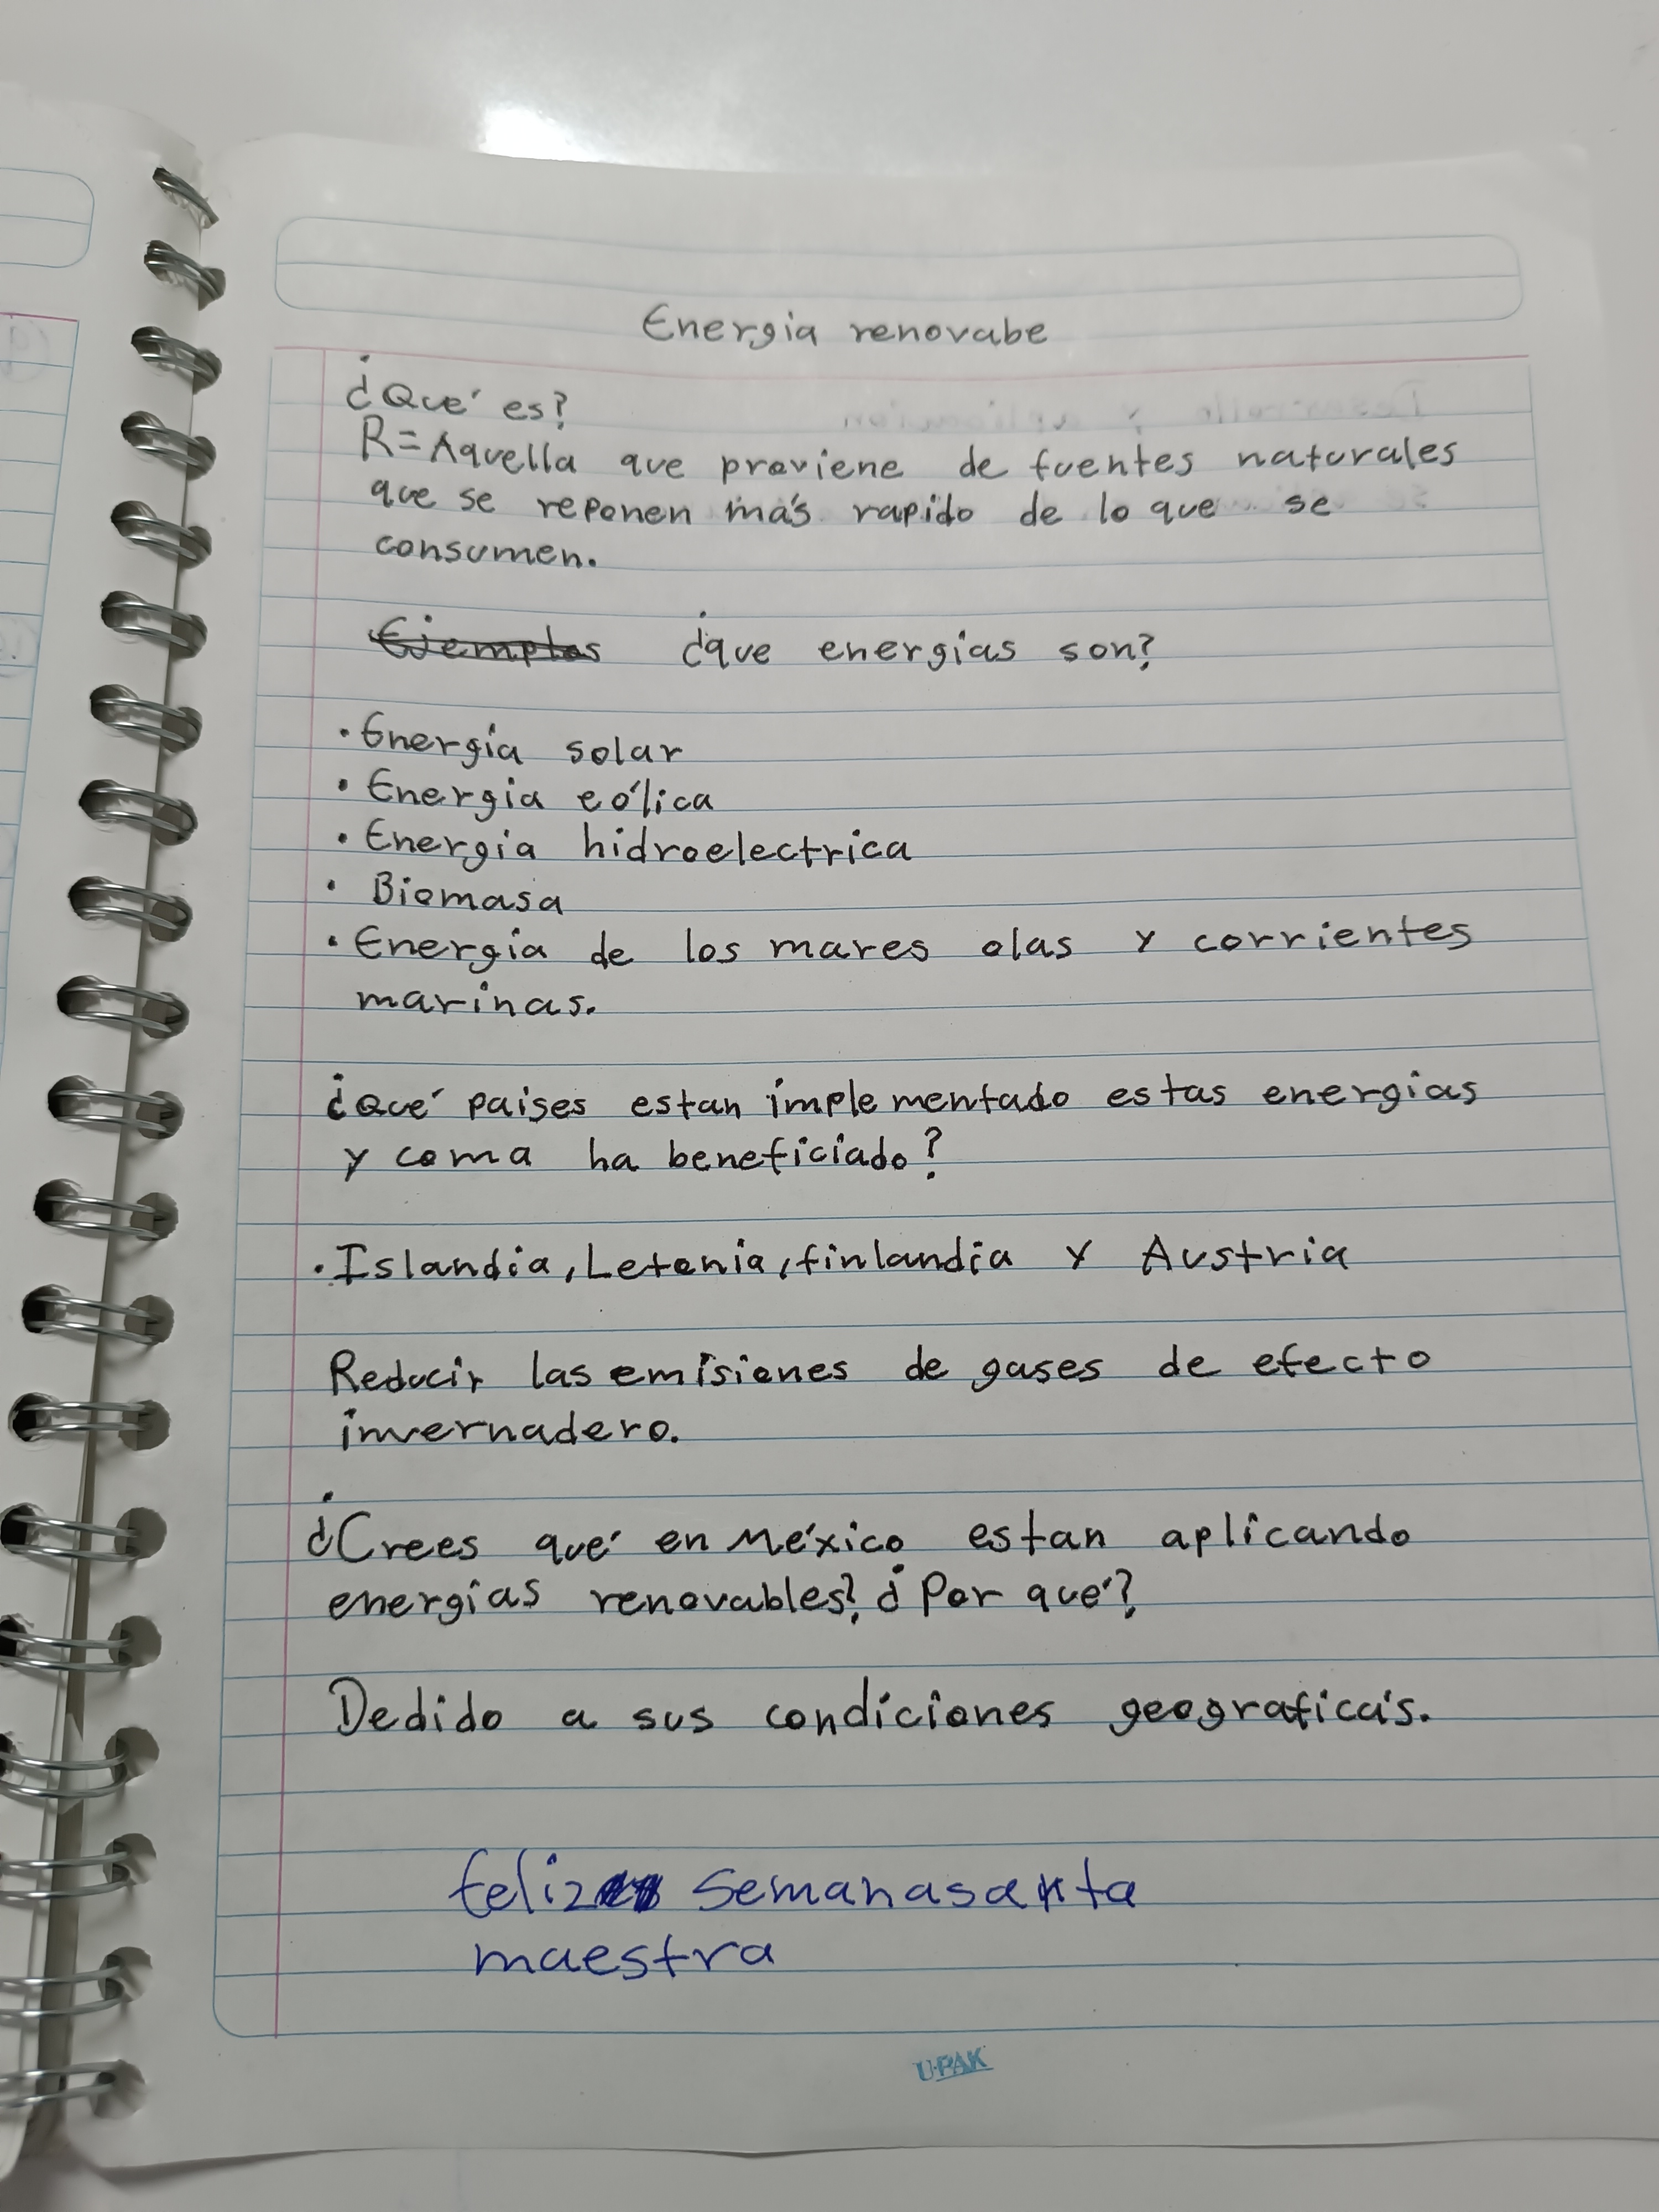 Energia renovabe
¿Qué es?
R=Aquella que proviene de fuentes naturales
que se reponen más rapido de lo que se
consumen.
Ejemplos ¿que energías son?
· Energía solar
· Energia eólica
· Energía hidroelectrica
· Biomasa
· Energía de los mares olas y corrientes
marinas.
¿Qué paises estan implementado estas energías
y coma ha beneficiado?
· Islandia, Letonia, finlandia y Austria
Reducir las emisiones de gases de efecto
invernadero.
¿Crees qué en México estan aplicando
energías renovables? ¿Por qué?
Dedido a sus condiciones geograficás.
feliz semanasanta
maestra
U·PAK